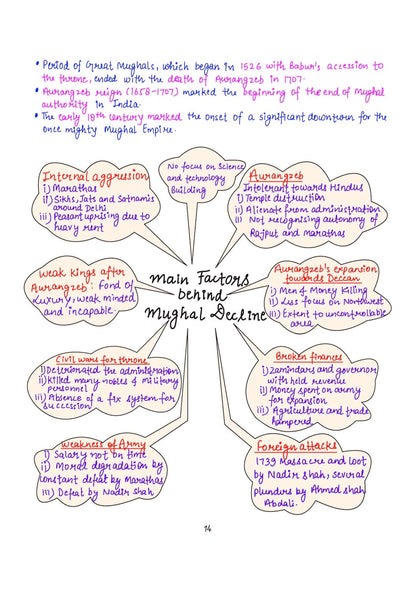 • Period of Great Mughals, which began in 1526 with Babur's accession to
the throne, ended with the death of Aurangzeb in 1707.
• Aurangzeb reign (1658-1707) marked the beginning of the end of Mughal
authority in India.
• The early 18th century marked the onset of a significant downturn for the
once mighty Mughal Empire.
Internal aggression
i) Marathas
ii) Sikhs, Jats and Satnamis
around Delhi
iii) Peasant uprising due to
heavy rent
No focus on Science
and technology
Building
Aurangzeb
Intolerant towards Hindus
i) Temple destruction
ii) Alienate from administration
iii) Not recognising autonomy of
Rajput and marathas
Weak Kings after
Aurangzeb: Fond of
Luxury, weak minded
and incapable.
Main Factors
behind
Mughal Decline
Aurangzeb's expansion
towards Deccan
i) Men & Money Killing
ii) Less focus on Northwest
iii) Extent to uncontrollable
area
Civil wars for throne
i) Deteriorated the administration
ii) Killed many nobles & military
personnel
iii) Absence of a fix system for
succession
Broken finances
i) Zamindars and governor
with held revenue
ii) Money spent on army
for expansion
iii) Agriculture and trade
hampered
Weakness of Army
i) Salary not on time
ii) Moral degradation by
constant defeat by Marathas
iii) Defeat by Nadir shah
Foreign attacks
1739 Massacre and loot
by Nadir shah, several
plunders by Ahmed shah
Abdali.
14